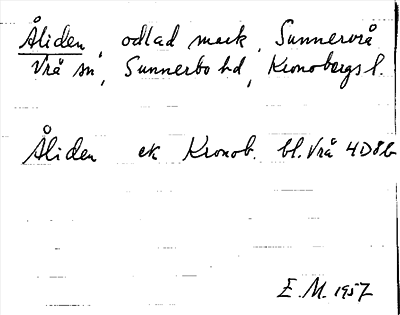 Åliden, odlad mark, Sunnervrå
Vrå sn, Sunnerbo hd, Kronobergs l.
Åliden ek Kronob. bl. Vrå 4D8b
E. M. 1957